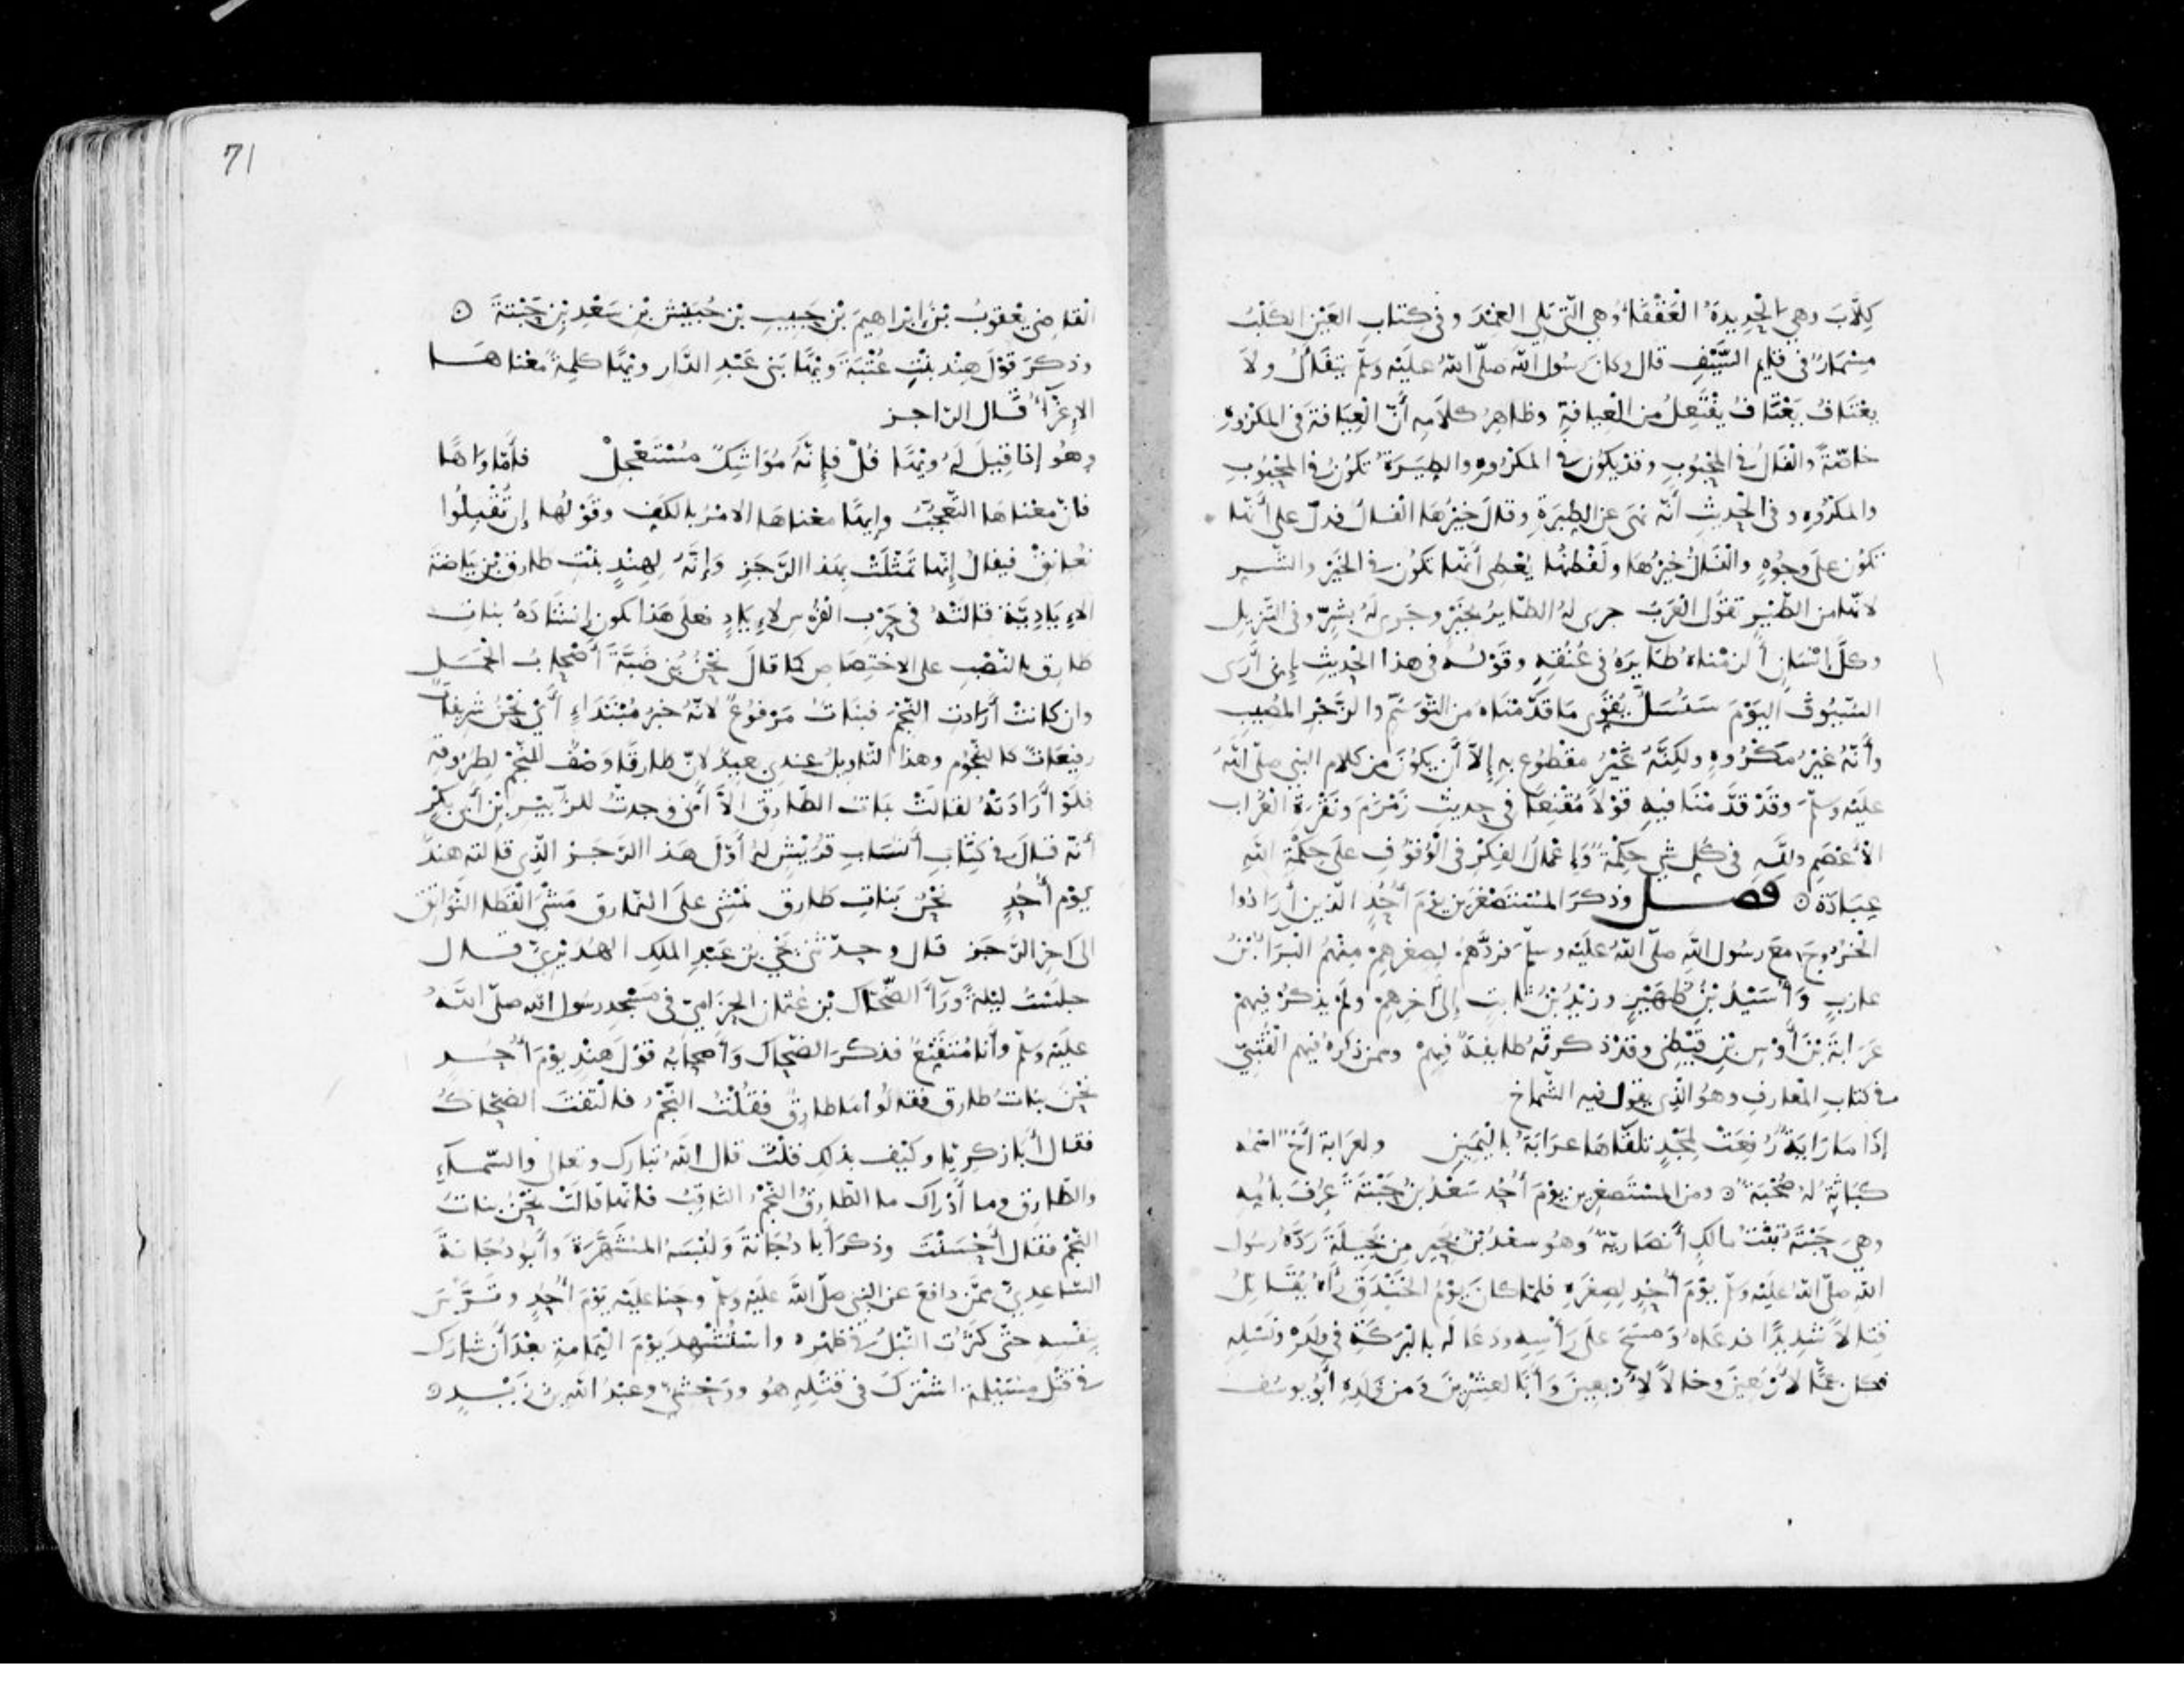 كِلَّابَ وهي الحْدِيدَةُ الْعَقْفَاءُ وهي الّتي تَلِي الغِمْدَ وفي كِتابِ العَيْنِ الكَلْبُ
مِسْمَارٌ في قايِم السَّيْفِ قال وكان رسُول اللّه صلّى اللّه عليْه وسلّم يتفَاَلُ ولاَ
يعْتَافُ يَعْتَافُ يَفْتَعِلُ من العِيافةِ وظاهِرُ كلاَمِهِ أَنّ العِيَافةَ في المكرُوهِ
خاصّةً والفَالُ في المحْبُوبِ وقدْ يكوُن في المكْرُوهِ والطِيَرَةُ تكوُنُ في المحْبُوبِ
والمكرُوهِ وفي الحْدِيثِ أَنّه نهَى عن الطِيَرَةِ وقال خَيْرُها الفالُ فدلّ على أَنّها
تكوُن علَى وجُوهٍ والْفَالُ خيْرُها ولَفْظُها يُعْطِي أَنّها تكوُن في الخيْرِ والشّر
لانّها من الطّيْرِ تقوُل الْعَرَبُ جرى لهُ الطّايِرُ بخيْرٍ وجَرى لهُ بشَرٍّ وفي التّنزِيلِ
وكلَّ انْسَانٍ أَلزمْناهُ طَايِرَهُ في عُنُقِهِ وقوْلُه في هذا الحْديثِ إِني أَرَى
السّيُوفَ اليَوْمَ سَتُسَلُّ يُقوِّي مَا قدّمْناهُ من التّوَسُّمِ والزّجْرِ المُصِيبِ
وأَنّهُ غيْرُ مكْرُوهٍ ولكِنَّهُ غيْرُ مقْطُوعٍ بهِ إِلاَّ أَن يكوُنَ من كلامِ النبي صلّى اللّهُ
علَيْهِ وَسلّم وقدْ قدَّمْنَا فيهِ قوْلاً مُقْنِعًا في حدِيثِ زَمْزَمَ ونَقْرَةِ الْغُرَابِ
الأَعْصَمِ وللّهِ في كُلِ شيٍ حِكْمةٌ وَإِعْمَالُ الفِكْرِ في الْوُقوُفِ علَى حِكْمَةِ اللّهِ
عِبَادَةٌ ۞ فصل وذكرَ المُسْتَصْغَرِين يوْمَ أُحُدٍ الّذينَ أَرَادُوا
الخُرُوجَ مَعَ رسُول اللّهِ صلّى اللّهُ علَيْه وسلّم فردَّهمْ لِصِغرِهِمْ مِنْهُمُ الْبَرَاءُ بْنُ
عازبٍ وَأُسَيْدُ بْنُ ظُهَيْرٍ وزيْدُ بْنُ ثابتٍ إِلى آخرِهِمْ ولمْ يذكُرْ فيهِمْ
عَرَابةَ بْنَ أَوْسِ بْنِ قيْظِي وقدْ ذكرتْهُ طايِفةٌ فِيهِمْ وممن ذكرهُ فيهِم القُتَبِيّ
في كتابِ المْعَارفِ وهوُ الّذِي يقوُل فيه الشّماخ
إذَا مَا رَايَةٌ رُفِعَتْ لِمَجْدٍ تلقّاهَا عرَابَةُ بالْيَمِينِ ولعَرَابة أَخٌ اسْمُه
كبَاثَةُ لهُ صُحْبَةٌ ۞ ومن المُسْتَصْغرِين يوْمَ أُحُدٍ سَعْدُ بْنُ حَبْتَةَ عُرِفَ بأُمِّهِ
وهيَ حَبْتَةُ بنْتُ مالكٍ أَنصَاريّةٌ وهُو سعْدُ بْنُ بجيْرٍ من بَجِيلَةَ رَدّهُ رسُول
اللّهِ صلّى اللّهُ علَيْهِ وسلّم يوْمَ أُحُدٍ لِصِغَرِهِ فلمّا كان يَوْمُ الخنْدقِ رآهُ يُقَاتِلُ
قِتالاً شدِيدًا فدعَاهُ وَمسَحَ علَى رَأْسِهِ ودعَا لَه بالْبَرَكَةِ في ولَدِهْ ونَسْلِهِ
فكانَ عمًّا لاَرْبعينَ وخالاً لاِرْبعِينَ وَأَبًا لعِشْرِينَ وَمن ولَدِهِ أَبُو يوسُف
القاضِي يعْقوُبُ بْنُ إِبْراهِيمَ بْنِ حَبِيبِ بْنِ خُبَيْشِ بْنِ سَعْدِ بْنِ حَبْتَةَ ۞
وذكرَ قوْلَ هِنْدِ بنْتِ عُتْبَةَ وَيْهًا بَني عَبْدِ الدّار ويْهًا كلِمةٌ مَعْناهَا
الاِغْرَآءُ قال الرّاجز
وهوُ إذا قِيلَ لهُ ويْهًا فُلْ فإِنّهُ مُوَاشِكٌ مُسْتَعْجِلْ فأَمّا وَاهًا
فانّ معْناها التّعجُّبُ وإِيهًا معْناهَا الامْرُ بالكَفِ وقوْلُها إن تُقْبِلُوا
نُعانِقْ فيقالُ إِنّها تَمثَّلَتْ بهَذا الرّجَزِ وَإِنّهُ لِهِنْدٍ بنْتِ طارقِ بْنِ بَيَاضَةَ
الاِيَادِيّة قالتْهُ في حَرْبِ الفُرْسِ لاِيَادٍ فعلَى هَذا يكون إِنشَادُهُ بناتِ
طارِقٍ بالنّصْبِ على الاخْتِصَاصِ كما قالَ نحْنُ بَني ضَبَّةَ أَصْحَابُ الجْمَل
وان كانتْ أَرَادتِ النّجْمَ فبنَاتُ مَرْفوُعٌ لانّهُ خبَرُ مُبْتَدَاءٍ أَيْ نَحْنُ شَرِيفاتٌ
رفِيعَاتٌ كالنّجُومِ وهذا التّاوِيلُ عِندِي بعِيدٌ لانّ طارقًا وَصْفٌ للنّجْم لِطُرُوقِهِ
فلوْ أَرَادتْهُ لقالَتْ بَنات الطّارِقِ الاَّ أَنّي وجدتُ للزُّبَيْرِ بْنِ أَبي بكْرٍ
أَنّه قالَ في كِتَابِ أَنْسَابِ قُرَيْشٍ لهُ أَوّلُ هَذا الرّجَزِ الّذِي قالتْه هندٌ
يوْم أُحُدٍ نحْنُ بَناتِ طارق نَمْشِي علَى النّمَارق مَشْيَ القَطا النَّوَاتِق
الى آخِرِ الرّجَزِ قال وحدّثني يحْيَ بْن عَبْدِ الملِكِ الهُدَيْرِيّ قال
جلَسْتُ ليْلةً وَرَآءَ الضّحّاكِ بْن عُثمان الحِزَاميّ في مَسْجِد رسُول اللّه صلّى اللّهُ
علَيْهِ وسلّم وأَنا مُتَقنِّعٌ فذكرَ الضّحّاكُ وَأَصحابُه قوْلَ هِنْدٍ يوْمَ أُحُدٍ
نحْنُ بناتُ طارق فقالُوا مَا طارِقٌ فقُلْتُ النّجْمُ فالْتفَتَ الضّحّاكُ
فقال أَبَا زكرِيّا وكَيْف بذلِك فقُلْتُ قال اللّهُ تبارك وتعالى والسّمآءِ
والطّارِقِ وما أَدْرَاكَ ما الطّارِقُ النّجْمُ الثّاقِبُ فانّما قالَتْ نحْنُ بناتُ
النّجْمِ فقالَ أَحْسَنْتَ وذكرَ أَبا دُجَانةَ وَلُبْسَهُ المُشَهَّرَةَ وَأَبُو دُجَانةَ
السّاعِدِيّ ممَّن دافعَ عن النبي صلّى اللّه علَيْه وسلّم وحَنا علَيْهِ يَوْمَ أُحُدٍ وتَرَّسَ
بِنفْسِهِ حتّى كثُرَت النّبْلُ في ظهْرِهِ واسْتُشْهِدَ يوْمَ الْيَمامةِ بعْدَ أَن شارَك
في قتْلِ مُسَيْلِمَة اشْتركَ في قتْلِهِ هُو ووَحْشِيّ وعبْدُ اللّه بْنُ زيْدٍ ۞
71